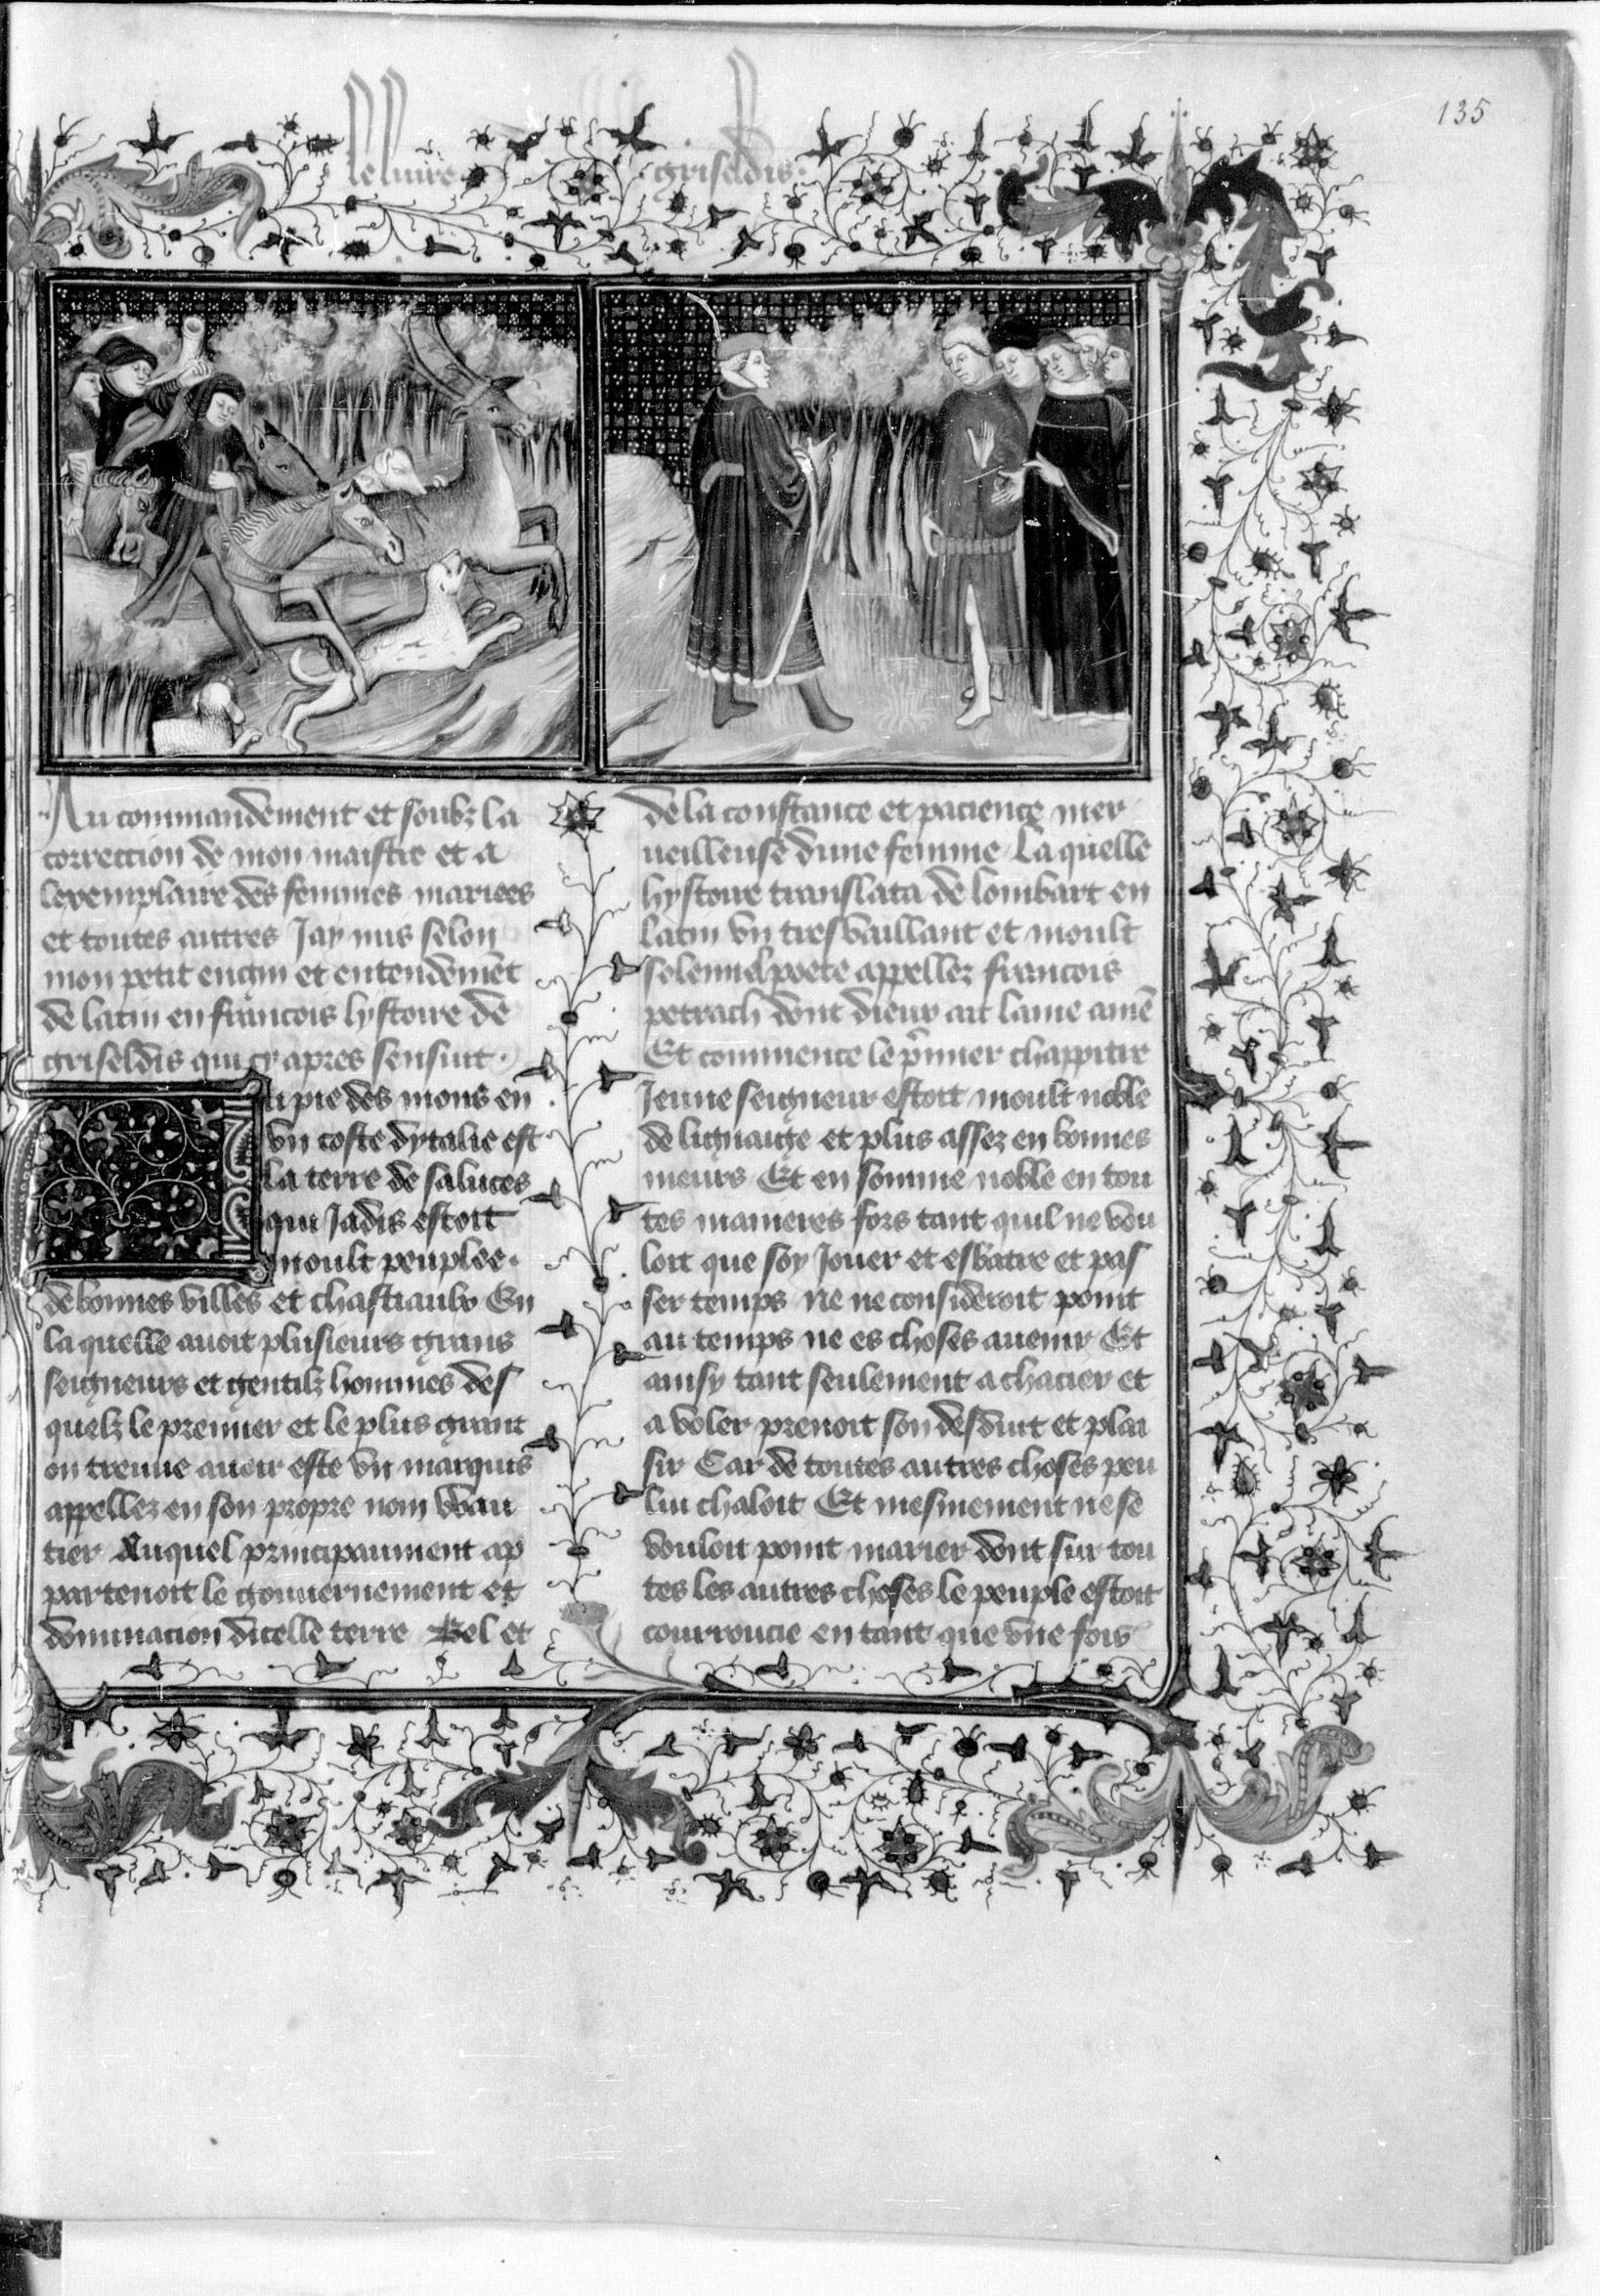 135
le livre griseldis
Au commandement et soubz la
correction de mon maistre et a
lexemplaire des femmes mariees
et toutes autres Jay mis selon
mon petit engin et entendemẽt
de latin en francois lystoire de
griseldis qui cy apres sensuit
Au pie des mons en
vn coste dytalie est
la terre de saluces
qui Jadis estoit
moult peuplee
de bonnes villes et chastiaulx En
la quelle auoit plusieurs grans
seigneurs et gentilz hommes des
quelz le premier et le plus grant
on treuue auoir este vn marquis
appellez en son propre nom Wau
tier Auquel principaument ap
partenoit le gouuernement et
dominacion dicelle terre Bel et
de la constance et pacience mer
ueilleuse dune femme La quelle
hystoire translata de lombart en
latin vn tres vaillant et moult
solennel poete appellez francois
petrach dont dieux ait lame amẽ
Et commence le p̃mier chappitre
Jeune seigneur estoit moult noble
de lignaige et plus assez en bonnes
meurs Et en somme noble en tou
tes manieres fors tant quil ne vou
loit que soy Jouer et esbatre et pas
ser temps Ne ne consideroit point
au temps ne es choses auenir Et
ainsy tant seulement a chacier et
a voler prenoit son desduit et plai
sir Car de toutes autres choses peu
lui chaloit Et mesmement ne se
vouloit point marier dont sur tou
tes les autres choses le peuple estoit
courroucie en tant que vne fois